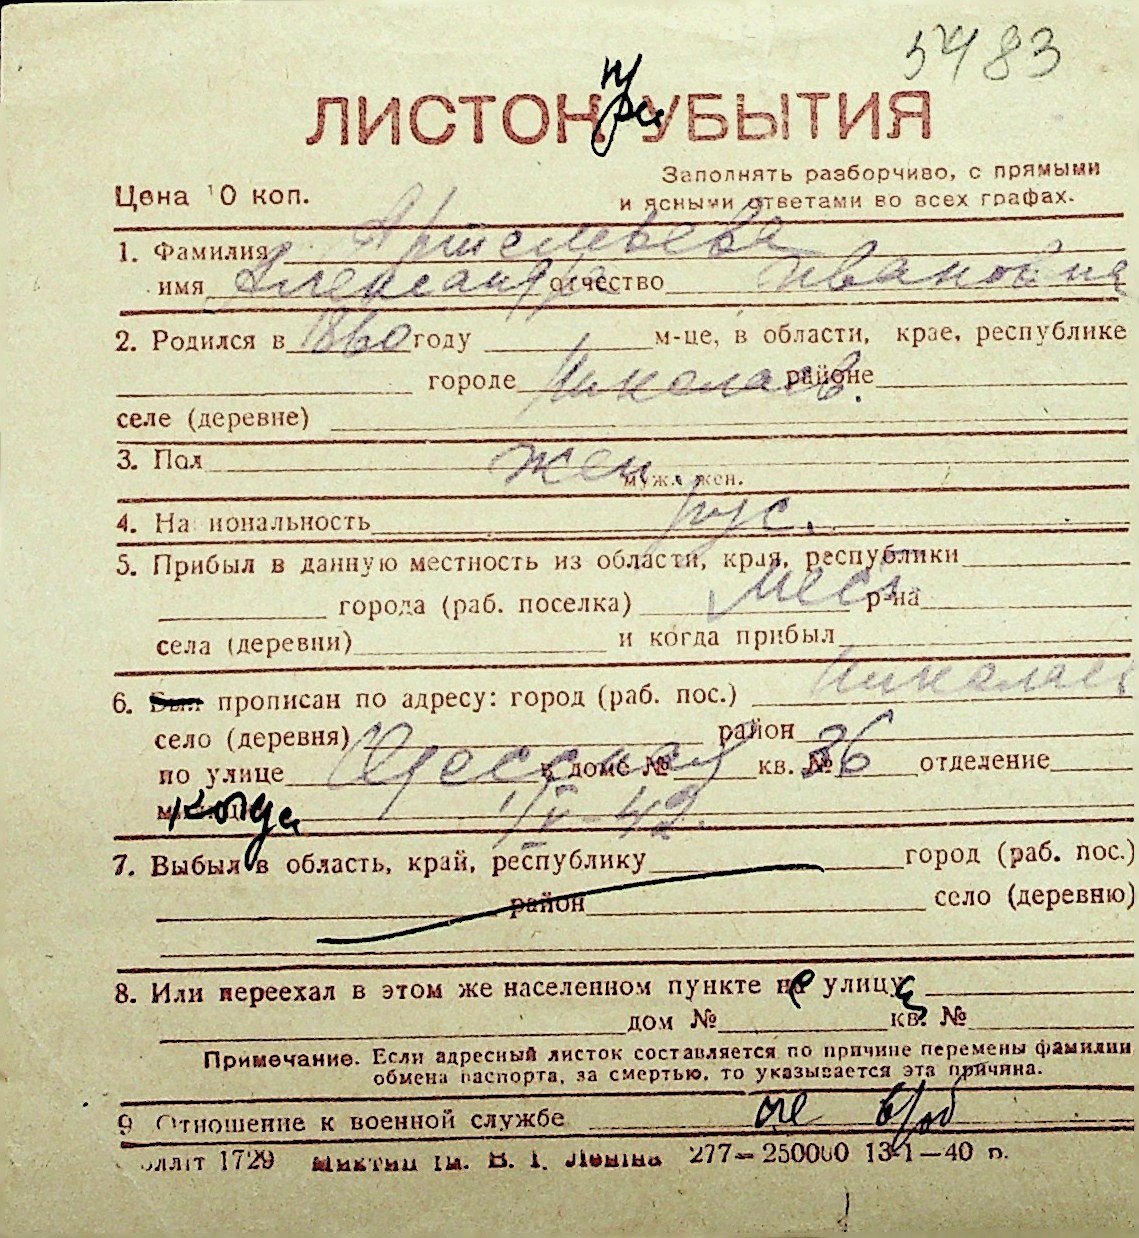 5483
ЛИСТОК при УБЫТИЯ
Заполнять разборчиво, с прямыми
Цена 10 коп. и ясными ответами во всех графах.
1. Фамилия
имя Александра отчество Ивановна
2. Родился в 1860 году м-це, в области, крае, республике
городе Николаев. районе
селе (деревне)
3. Пол жен
муж., жен.
4. Национальность рус.
5. Прибыл в данную местность из области, края, республики
города (раб. поселка) мест. р-на
села (деревни) и когда прибыл
6. Был прописан по адресу: город (раб. пос.) Николаев
село (деревня) район
по улице Одесская в доме № кв. № 36 отделение
когда 1/IV-42.
7. Выбыл в область, край, республику город (раб. пос.)
район село (деревню)
8. Или переехал в этом же населенном пункте не улицу
дом № кв. №
Примечание. Если адресный листок составляется по причине перемены фамилии
обмена паспорта, за смертью, то указывается эта причина.
9 Отношение к военной службе не в/об
1729 В. І. Леніна 277–250000 13-1–40 р.